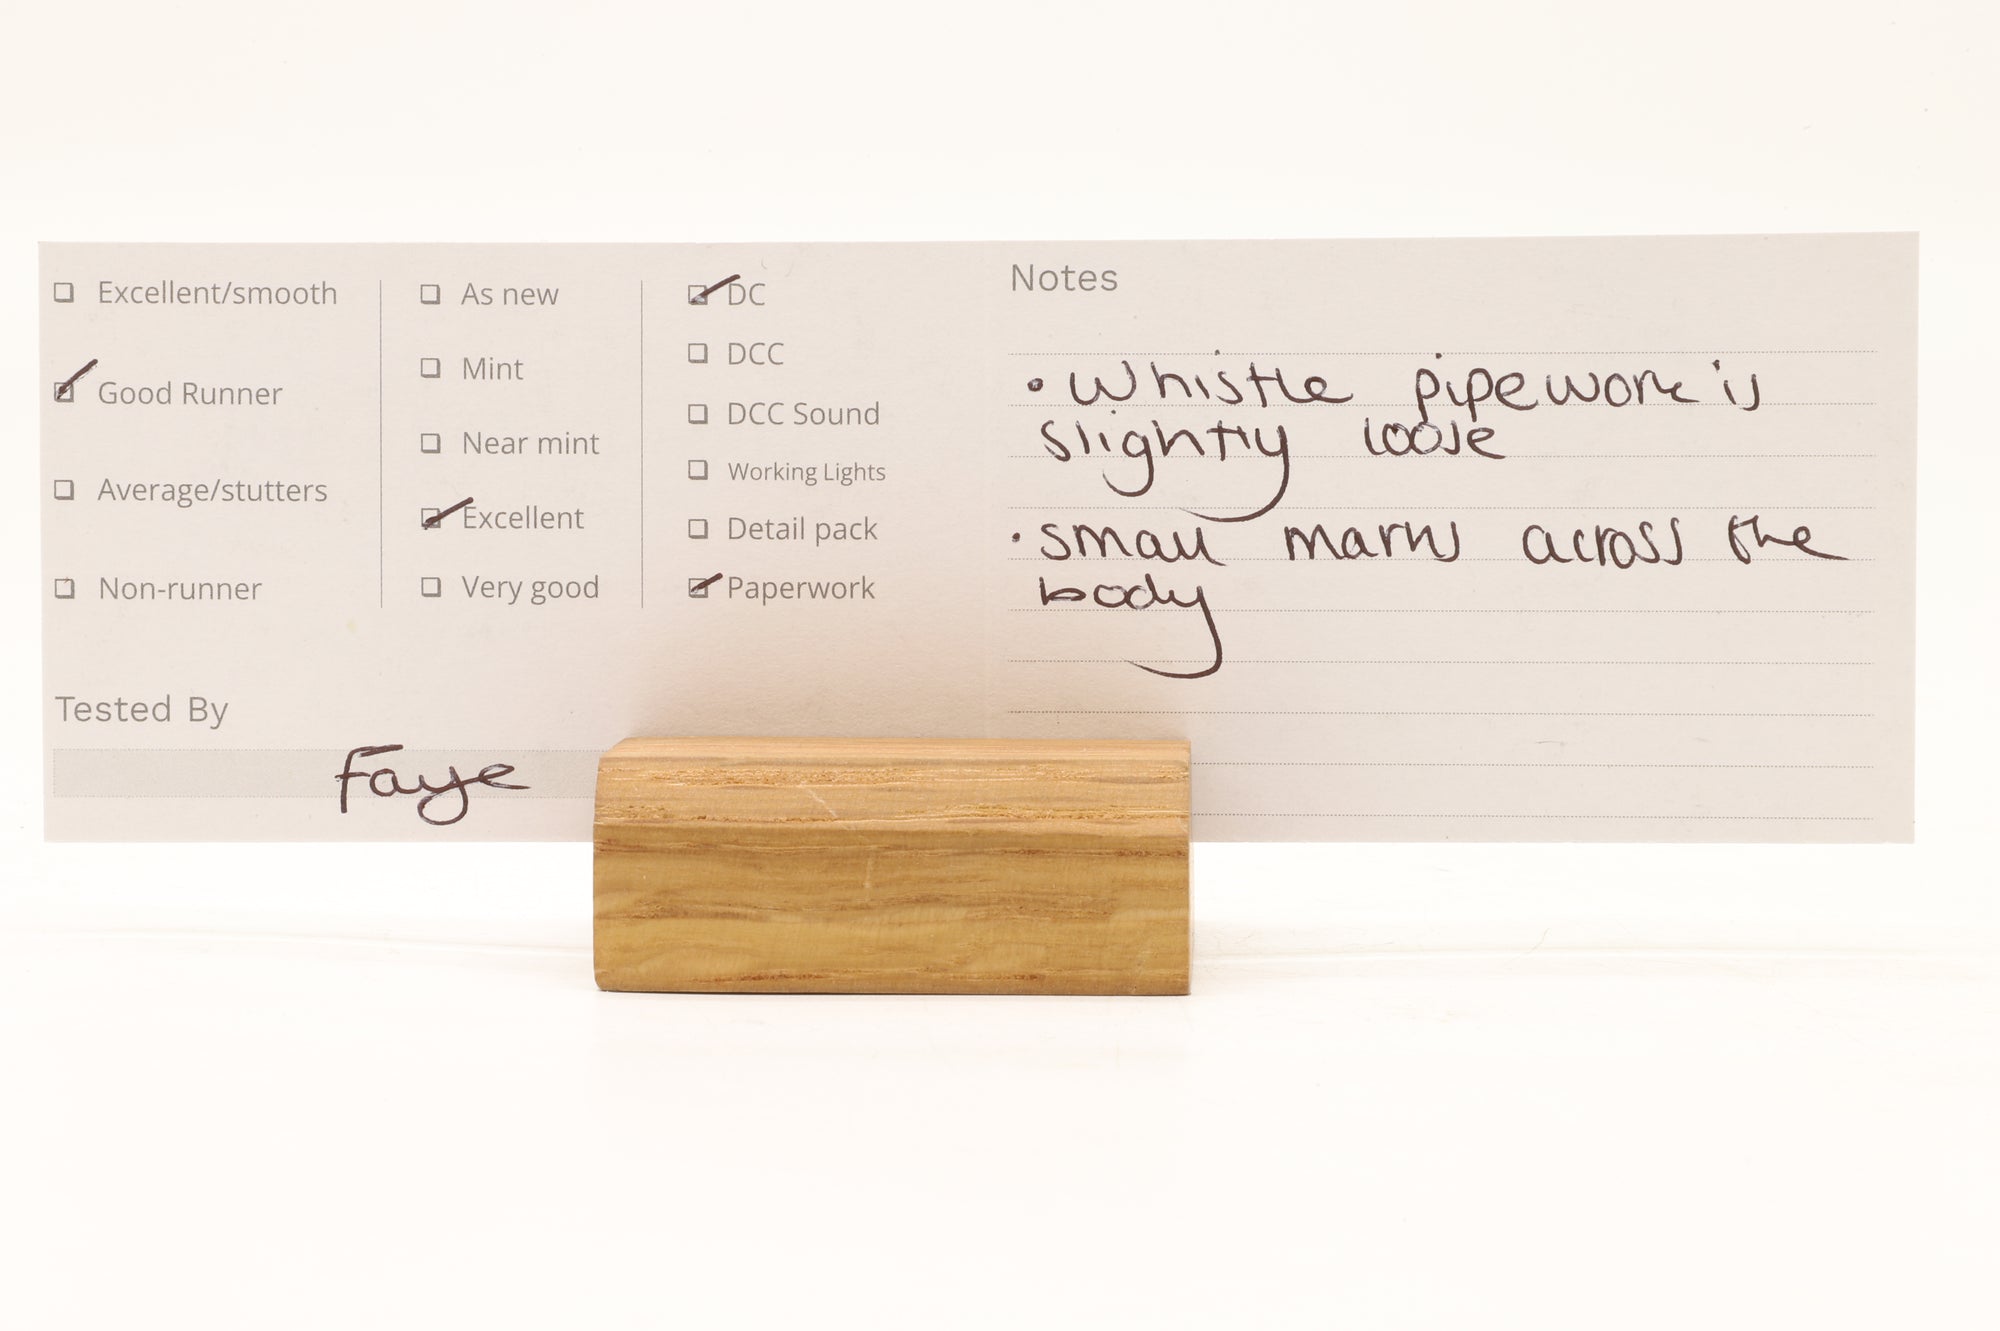 Excellent/smooth
Good Runner
Average/stutters
Non-runner
As new
Mint
Near mint
Excellent
Very good
DC
DCC
DCC Sound
Working Lights
Detail pack
Paperwork
Tested By
Faye
Notes
• Whistle pipework is
slightly loose
• small marks across the
body